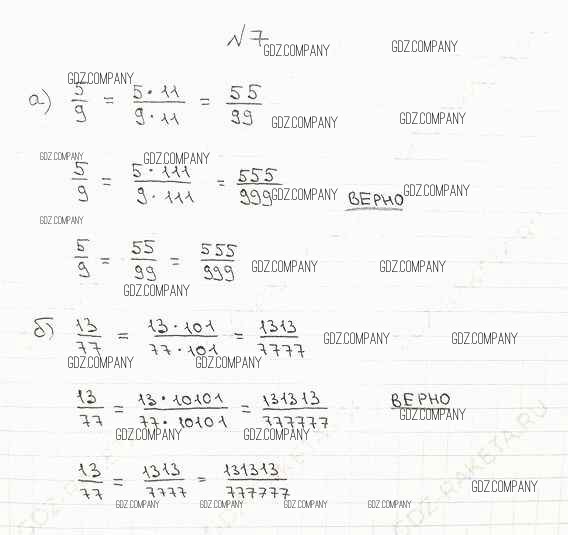 № 7
GDZ.COMPANY GDZ.COMPANY
GDZ.COMPANY
а) 5/9 = 5·11/9·11 = 55/99
GDZ.COMPANY GDZ.COMPANY
GDZ.COMPANY GDZ.COMPANY
5/9 = 5·111/9·111 = 555/999 ВЕРНО
GDZ.COMPANY GDZ.COMPANY
GDZ.COMPANY
5/9 = 55/99 = 555/999
GDZ.COMPANY GDZ.COMPANY
GDZ.COMPANY
б) 13/77 = 13·101/77·101 = 1313/7777
GDZ.COMPANY GDZ.COMPANY
GDZ.COMPANY GDZ.COMPANY
13/77 = 13·10101/77·10101 = 131313/777777 ВЕРНО
GDZ.COMPANY
GDZ.COMPANY GDZ.COMPANY
13/77 = 1313/7777 = 131313/777777
GDZ.COMPANY
GDZ.COMPANY GDZ.COMPANY GDZ.COMPANY GDZ.COMPANY
GDZ-RAKETA.RU
GDZ-RAKETA.RU